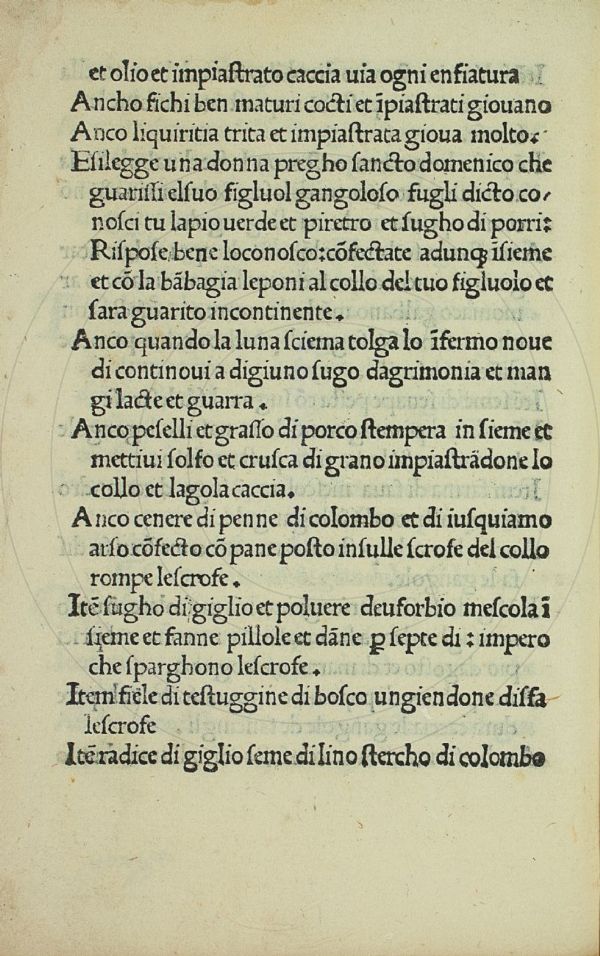 et olio et impiaſtrato caccia uia ogni enfiatura
Ancho fichi ben maturi cocti et īpiaſtrati giouano
Anco liquiritia trita et impiaſtrata gioua molto.
Eſilegge una donna pregho ſancto domenico che
guariſſi elſuo figluol gangoloſo fugli dicto co/
noſci tu lapio uerde et piretro et ſugho di porri:
Riſpoſe bene loconoſco: cōfectate adunqꝫ īſieme
et cō la bābagia leponi al collo del tuo figluolo et
ſara guarito incontinente.
Anco quando la luna ſciema tolga lo īfermo noue
di continoui a digiuno ſugo dagrimonia et man
gi lacte et guarra.
Anco peſelli et graſſo di porco ſtempera in ſieme et
mettiui ſolfo et cruſca di grano impiaſtrādone lo
collo et lagola caccia.
Anco cenere di penne di colombo et di iuſquiamo
arſo cōfecto cō pane poſto inſulle ſcrofe del collo
rompe leſcrofe.
Itē ſugho di giglio et poluere deuforbio meſcola ī
ſieme et fanne pillole et dāne ꝑ ſepte di: impero
che ſparghono leſcrofe.
Item fiele di teſtuggine di boſco ungiendone diſfa
leſcrofe
Itē radice di giglio ſeme di lino ſtercho di colombo